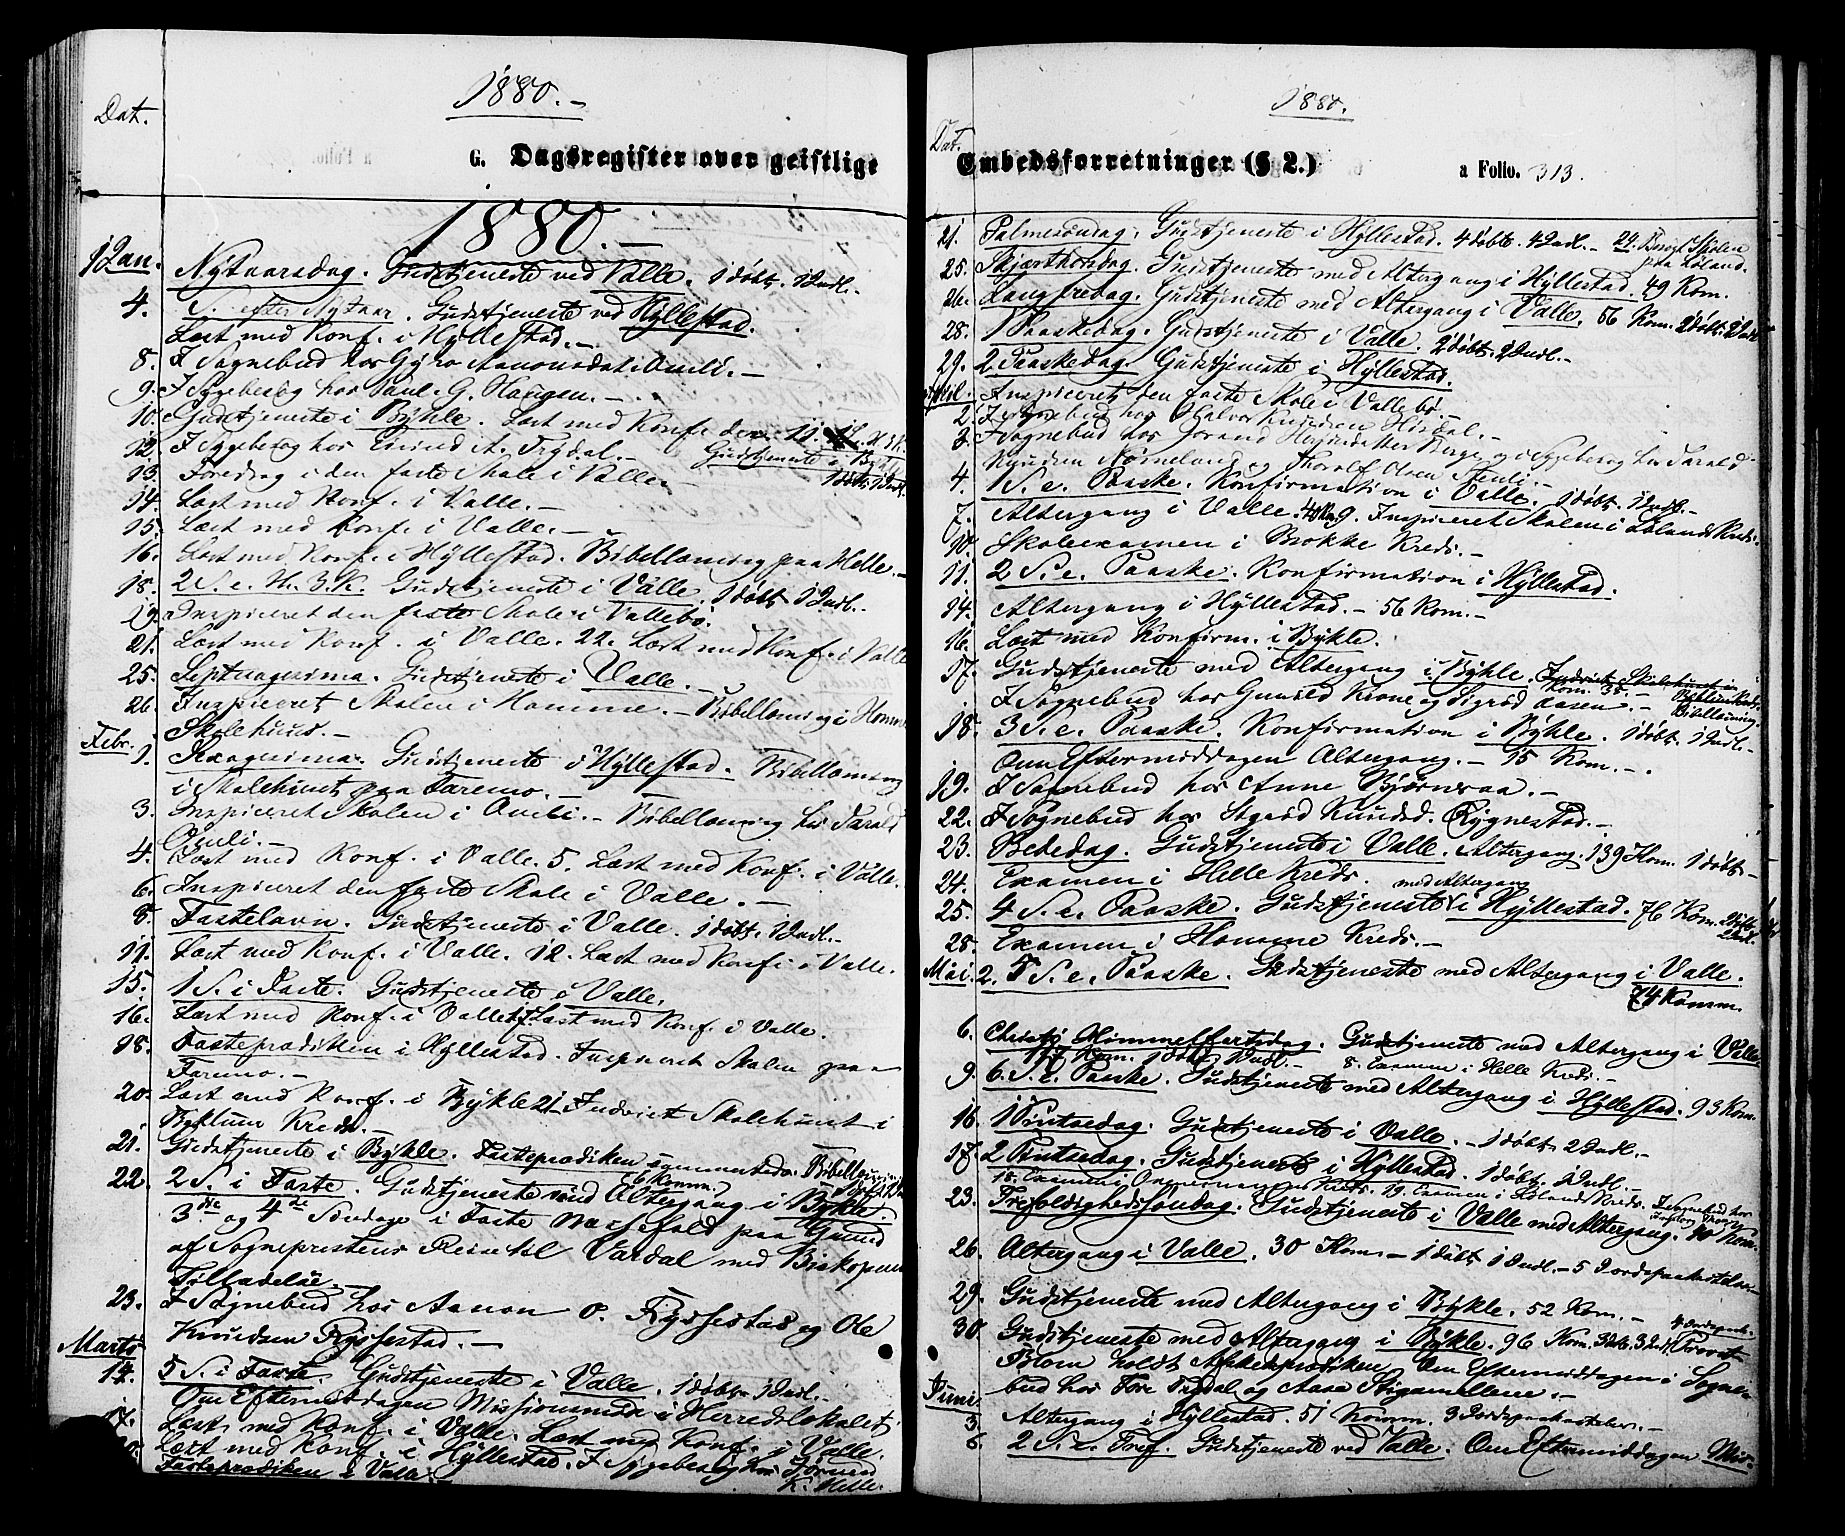 1880. -
Dat.
G. Dagsregister over geistlige
1880. -
1 Jan. Nytaarsdag. Gudstjeneste ved Valle. 1 døbt. 1 Indl. -
4. S. efter Nytaar. Gudstjeneste ved Hyllestad.
Læst med Konf. i Hyllestad. -
8. I Sognebud hos Aanonsdat. Omli. -
9. I Sygebesøg hos Paul G. Haugen. -
10. Gudstjeneste i Bykle. Læst med Konf. den 11.
12. I Sygebesøg hos Eivind A. Trydal. - Gudstjeneste i Bykle
13. Foredrag i den faste Skole i Valle. - 1 døbt. 1 Indl.
14. Læst med Konf. i Valle. -
15. Læst med Konf. i Valle. -
16. Læst med Konf. i Hyllestad. Bibellæsning paa Helle. -
18. 2 S. e. H. 3. K. Gudstjeneste i Valle. 1 døbt 1 Indl. -
19. Inspiceret den faste Skole i Vallebø.
21. Læst med Konf. i Valle. 22. Læst med Konf. i Valle
25. Septuagesima. Gudstjeneste i Valle. -
26. Inspiceret Skolen i Homme. - Bibellæsning i Homme
Skolehuus. -
Febr. 1. Gudstjeneste i Hyllestad. Bibellæsning
i Skolehuset paa Faremo. -
3. Inspiceret Skolen i Omli. - Bibellæsning hos Tarald
Omli. -
4. Læst med Konf. i Valle. 5. Læst med Konf. i Valle.
6. Inspiceret den faste Skole i Valle. -
8. Fastelavn. Gudstjeneste i Valle. 1 døbt. 1 Indl. -
11. Læst med Konf. i Valle. 12. Læst med Konf. i Valle.
15. 1 S. i Faste. Gudstjeneste i Valle.
16. Læst med Konf. i Valle 17. Læst med Konf. i Valle.
18. Fasteprædiken i Hyllestad. Inspiceret Skolen paa
Faremo. -
20. Læst med Konf. i Bykle 21. Indviet Skolehuset i
Byklum Kreds. -
21. Gudstjeneste i Bykle. Fasteprædiken sammesteds. Bibellæsning
22. 2 S. i Faste. Gudstjeneste med Altergang i Bykle. 6 Komm.
3die og 4de Søndage i Faste Messefald paa Grund
af Sognepræstens Reise til Vardal med Biskopens
Tilladelse. -
23. I Sognebud hos Aanon O. Rysstad og Ole
Knudsen Rysstad. -
Marts
14. 5 S. i Faste. Gudstjeneste i Valle. 1 døbt 1 Indl. -
Om Eftermiddagen Missionsmøde i Herredslokalet.
17. Læst med Konf. i Valle. Læst med Konf. i Valle.
Læst med Konf. i Hyllestad. I Sygebesøg hos
Fasteprædiken i Valle K. Helle.
1880.
Dat.
Embedsforretninger (§ 2.)
a Folio. 313.
21. Palmesøndag. Gudstjeneste i Hyllestad. 4 døbt. 4 Indl. - 24. Besøgt Skolen
paa Løland.
25. Skjærthorsdag. Gudstjeneste med Altergang i Hyllestad. 49 Kom.
26. Langfredag. Gudstjeneste med Altergang i Valle. 56 Kom. 2 døbt. 2 Indl.
28. 1 Paaskedag. Gudstjeneste i Valle. 2 døbt. 2 Indl. -
29. 2 Paaskedag. Gudstjeneste i Hyllestad.
April. Inspiceret den faste Skole i Vallebø. -
2. I Sognebud hos Halvor Knudsen Hovdal. -
3. I Sognebud hos Jorand Berge og i Sygebesøg hos Tarald
Knudsen Nomeland og Thorolf Olsen
4. 1 S. e. Paaske. Konfirmation i Valle. 1 døbt. 1 Indl. -
7. Altergang i Valle. 40 Kom. 9. Inspiceret Skolen i Lølands Kreds.
10. Skoleexamen i Brokke Kreds. -
11. 2 S. e. Paaske. Konfirmation i Hyllestad.
14. Altergang i Hyllestad. - 56 Kom. -
16. Læst med Konfirm. i Bykle.
17. Gudstjeneste med Altergang i Bykle. Indviet Skolehuset i
Byklum Kreds.
I Sognebud hos Gunild og Sigrid Aasen. - Kom. 35. - Bibellæsning.
18. 3 S. e. Paaske. Konfirmation i Bykle. 1 døbt. 1 Indl. -
Om Eftermiddagen Altergang. - 15 Kom. -
19. I Sognebud hos Anne Bjørnaraa. -
22. I Sognebud hos Sigrid Knudsd. Rygnestad. -
23. Bededag. Gudstjeneste i Valle. Altergang. 139 Kom. 1 døbt. -
24. Examen i Helle Kreds.
25. 4 S. e. Paaske. Gudstjeneste med Altergang i Hyllestad. 76 Kom. 2 døbt.
2 Indl.
28. Examen i Homme Kreds. -
Mai 2. 5 S. e. Paaske. Gudstjeneste med Altergang i Valle.
74 Komm.
6. Christi Himmelfartsdag. Gudstjeneste med Altergang i Valle
Kom. 1 døbt 1 Indl. - 8. Examen i Helle Kreds. -
9. 6. S. e. Paaske. Gudstjeneste med Altergang i Hyllestad. 93 Kom.
16. 1 Pintsedag. Gudstjeneste i Valle. - 1 døbt. 2 Indl. -
17. 2 Pintsedag. Gudstjeneste i Hyllestad. 1 døbt. 1 Indl. -
18. Examen i Kreds. 19. Examen i Lølands Kreds. I Sognebud hos
23. Trefoldighedssøndag. Gudstjeneste i Valle med Altergang. 40 Kom.
26. Altergang i Valle. 30 Kom. - 1 døbt 1 Indl. - 5 Jordspaakastelser
29. Gudstjeneste med Altergang i Bykle. 52 Kom. -
4 Jordspaak.
30. Gudstjeneste med Altergang i Bykle. 96 Kom. 3 Db. 3 Indl. Provst
Blom holdt Aftenprædiken. Om Eftermiddagen i Sogne-
bud hos Tore Trydal og Aase Stigamellene. -
Juni
3. Altergang i Hyllestad. 51 Komm. 3 Jordspaakastelser. -
6. 2 S. e. Tref. Gudstjeneste ved Valle. Om Eftermiddagen Mis-